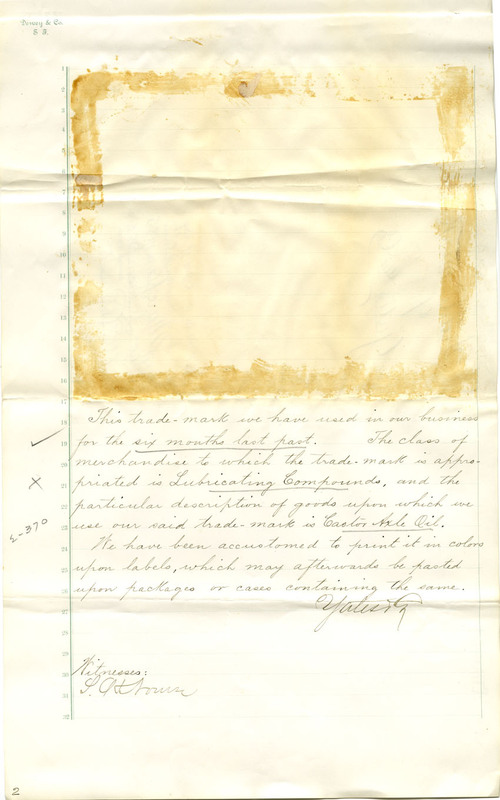 Dewey & Co.
S. F.
1
2
3
4
5
6
7
8
9
10
11
12
13
14
15
16
17
18
19
20
21
22
23
24
25
26
27
28
29
30
31
32
This trade-mark we have used in our business
for the six months last past. The class of
merchandise to which the trade-mark is appro-
priated is Lubricating Compounds, and the
particular description of goods upon which we
use our said trade-mark is Castor Axle Oil.
We have been accustomed to print it in colors
upon labels, which may afterwards be pasted
upon packages or cases containing the same.
Yates & Co
Witnesses:
S. H. Nourse
2-370
2